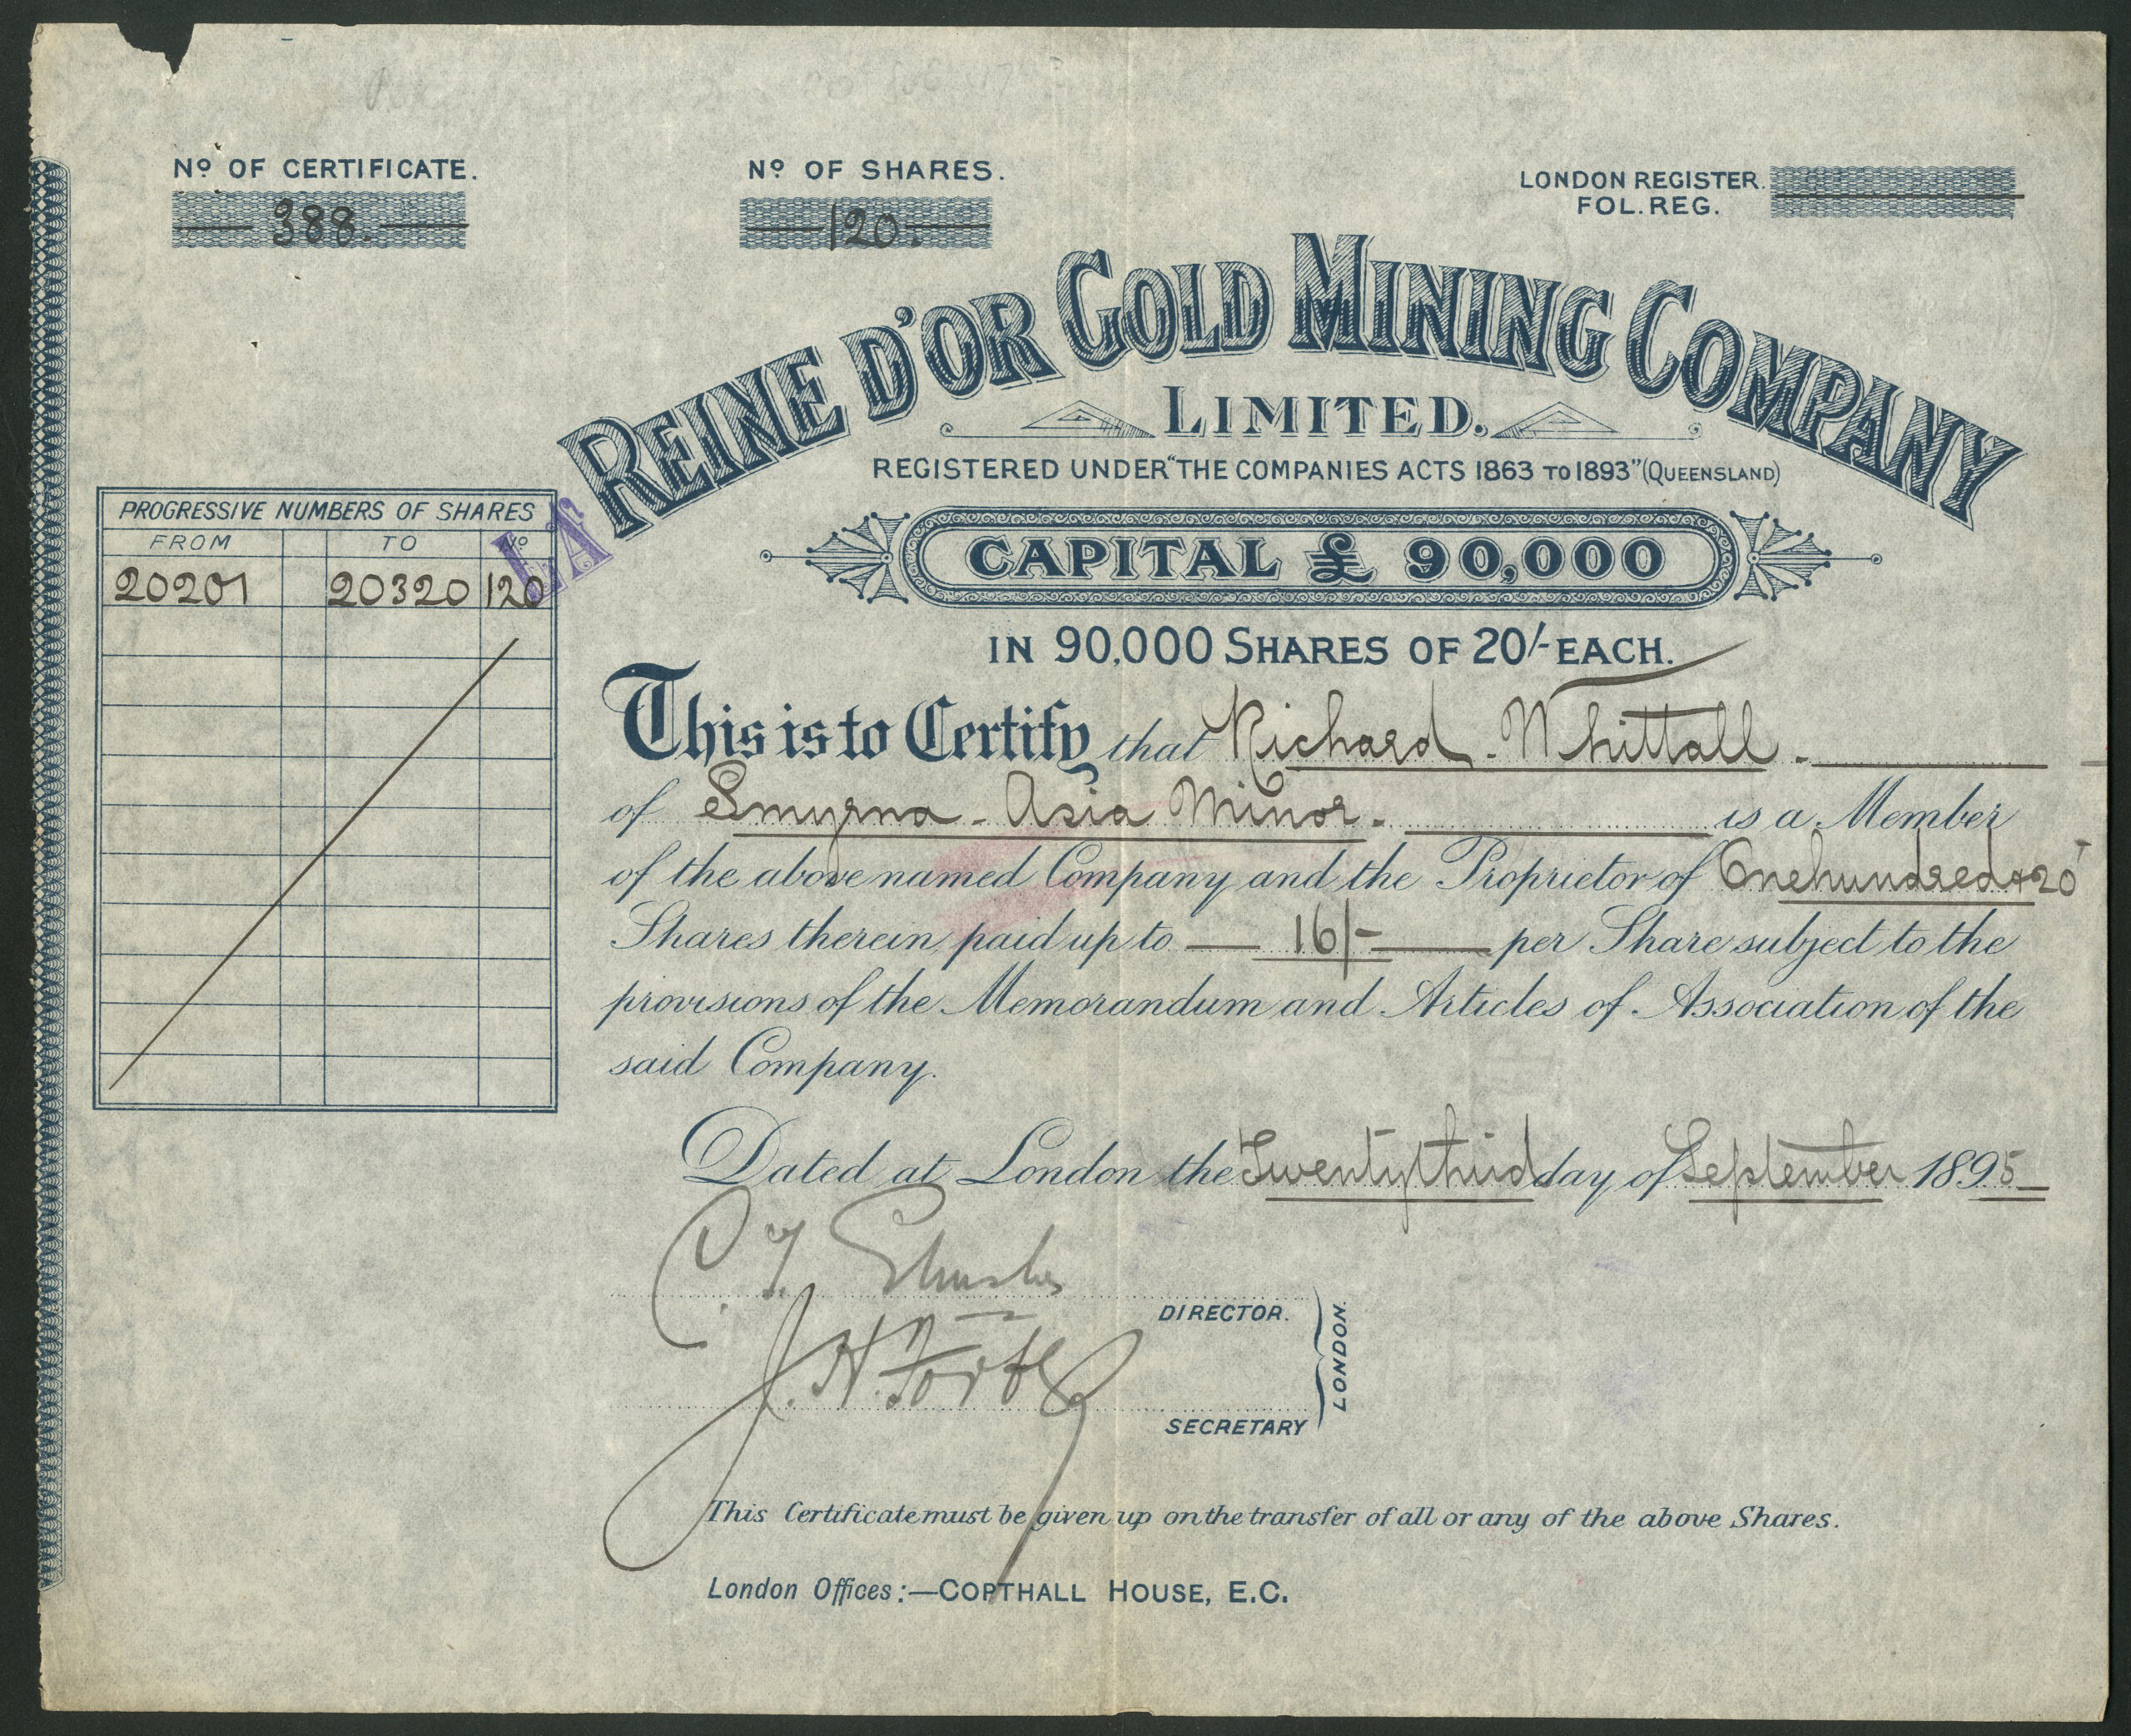 Nº OF CERTIFICATE.
388.
Nº OF SHARES.
120.
LONDON REGISTER.
FOL. REG.
LA REINE D'OR GOLD MINING COMPANY
LIMITED.
REGISTERED UNDER "THE COMPANIES ACTS 1863 TO 1893" (QUEENSLAND)
CAPITAL £ 90,000
IN 90,000 SHARES OF 20/- EACH.
PROGRESSIVE NUMBERS OF SHARES
FROM TO Nº
20201 20320 120
This is to Certify that Richard Whittall.
of Smyrna - Asia Minor. is a Member
of the above named Company and the Proprietor of Onehundred & 20
Shares therein, paid up to 16/- per Share subject to the
provisions of the Memorandum and Articles of Association of the
said Company.
Dated at London the Twentythird day of September 1895
C. J.
DIRECTOR.
J. H.
SECRETARY
LONDON.
This Certificate must be given up on the transfer of all or any of the above Shares.
London Offices:—COPTHALL HOUSE, E.C.